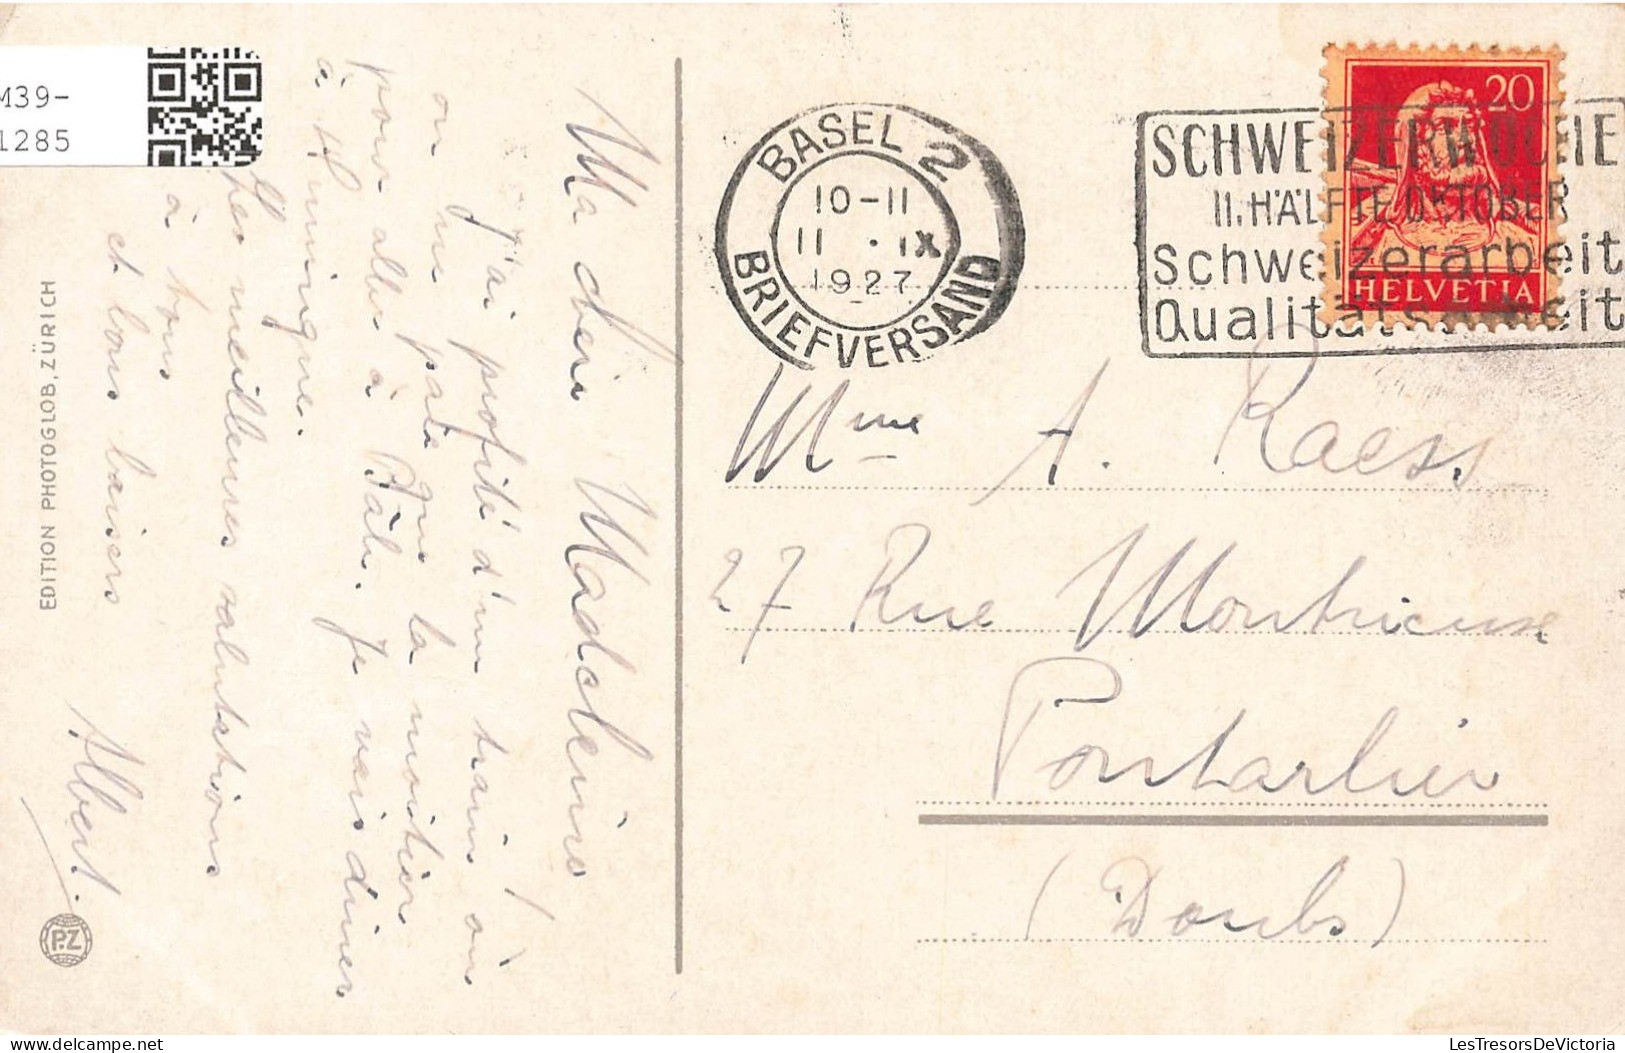 M39-
1285
EDITION PHOTOGLOB, ZÜRICH
P.Z
Ma chère Madeleine
J'ai profité d'un train où
on ne paie que la moitié
pour aller à Bâle. Je vais dîner
à Huningue.
Mes meilleures salutations
à tous
et bons baisers
Albert.
BASEL 2
10-11
11 · IX
1927
BRIEFVERSAND
SCHWEIZERWOCHE
II. HÄLFTE OKTOBER
Schweizerarbeit
Qualitätsarbeit
20
HELVETIA
Mme A. Raess
27 Rue Montrieux
Pontarlier
(Doubs)
LesTresorsDeVictoria